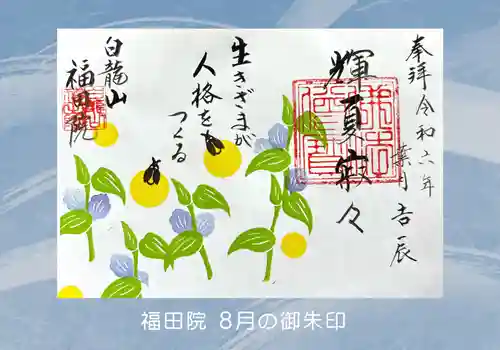 奉拝 令和六年
葉月吉辰
輝夏寂々
生きざまが
人格を
つくる
白龍山
福田院
福田院 8月の御朱印